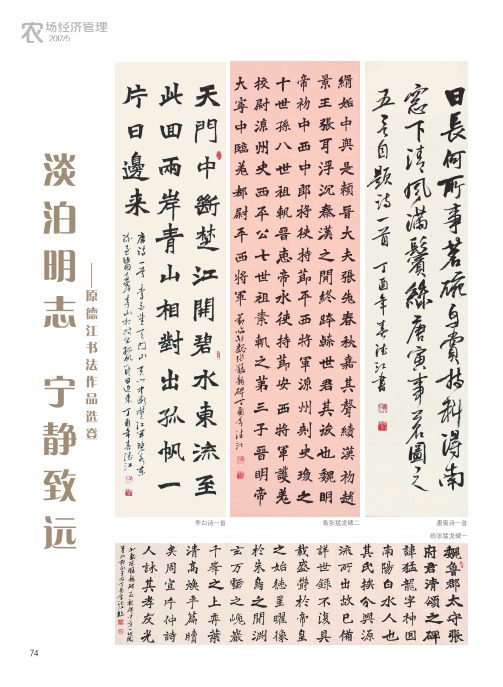 农场经济管理
2017/5
淡泊明志 宁静致远
——原德江书法作品选登
天門中斷楚江開碧水東流至
此回兩岸青山相對出孤帆一
片日邊来
緝姬中興是賴晋大夫張老春秋嘉其聲績漢初趙
景王張耳浮沉秦漢之間終跨魏世君其該也魏明
帝初中西中郎將使持節平西將軍凉州刺史瑍之
十世孫八世祖軌晋惠帝永使持節安西將軍護羌
校尉凉州史西平公七世祖素軌之第三子晋明帝
大寧中臨羌都尉平西將軍
日長何所事茗碗自賫持料得南
窓下清風滿鬢絲唐寅事茗圖之
五言自題詩一首 丁酉年春德江書
李白诗一首
临张猛龙碑二
唐寅诗一首
临张猛龙碑一
魏魯郡太守張
府君清頌之碑
諱猛龍字神囧
南陽白水人也
其氏族分興源
流所出故已備
詳世録不復具
載盛欝於帝皇
之始德星曜像
於朱鳥之間淵
玄万壑之中巍巖
千峯之上弈葉
清高煥乎篇牘
矣周宣時仲詩
人詠其孝友光
74